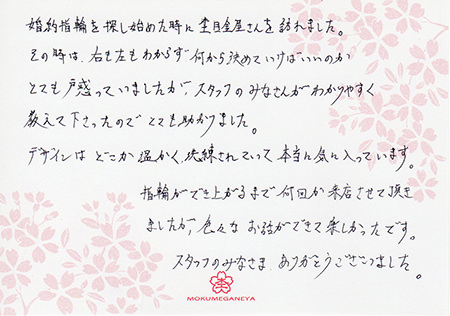 婚約指輪を探し始めた時に杢目金屋さんを訪れました。
その時は、右も左もわからず何から決めていけばいいのか
とても戸惑っていましたが、スタッフのみなさんがわかりやすく
教えて下さったのでとても助かりました。
デザインはどこか温かく、洗練されていて本当に気に入っています。
指輪ができ上がるまで何回か来店させて頂き
ましたが、色々なお話ができて楽しかったです。
スタッフのみなさま、ありがとうございました。
MOKUMEGANEYA